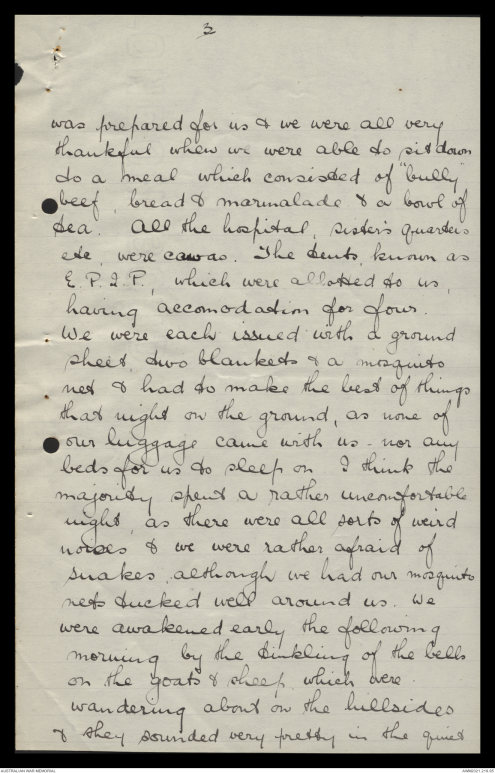 3
was prepared for us & we were all very
thankful when we were able to sit down
to a meal which consisted of "bully"
beef, bread & marmalade & a bowl of
tea. All the hospital, sister's quarters
etc, were canvas. The tents, known as
E.P.I.P., which were allotted to us,
having accomodation for four.
We were each issued with a ground
sheet, two blankets & a mosquito
net & had to make the best of things
that night on the ground, as none of
our luggage came with us - nor any
beds for us to sleep on. I think the
majority spent a rather uncomfortable
night, as there were all sorts of weird
noises & we were rather afraid of
snakes, although we had our mosquito
nets tucked well around us. We
were awakened early the following
morning by the tinkling of the bells
on the goats & sheep, which were
wandering about on the hillsides
& they sounded very pretty in the quiet
AUSTRALIAN WAR MEMORIAL